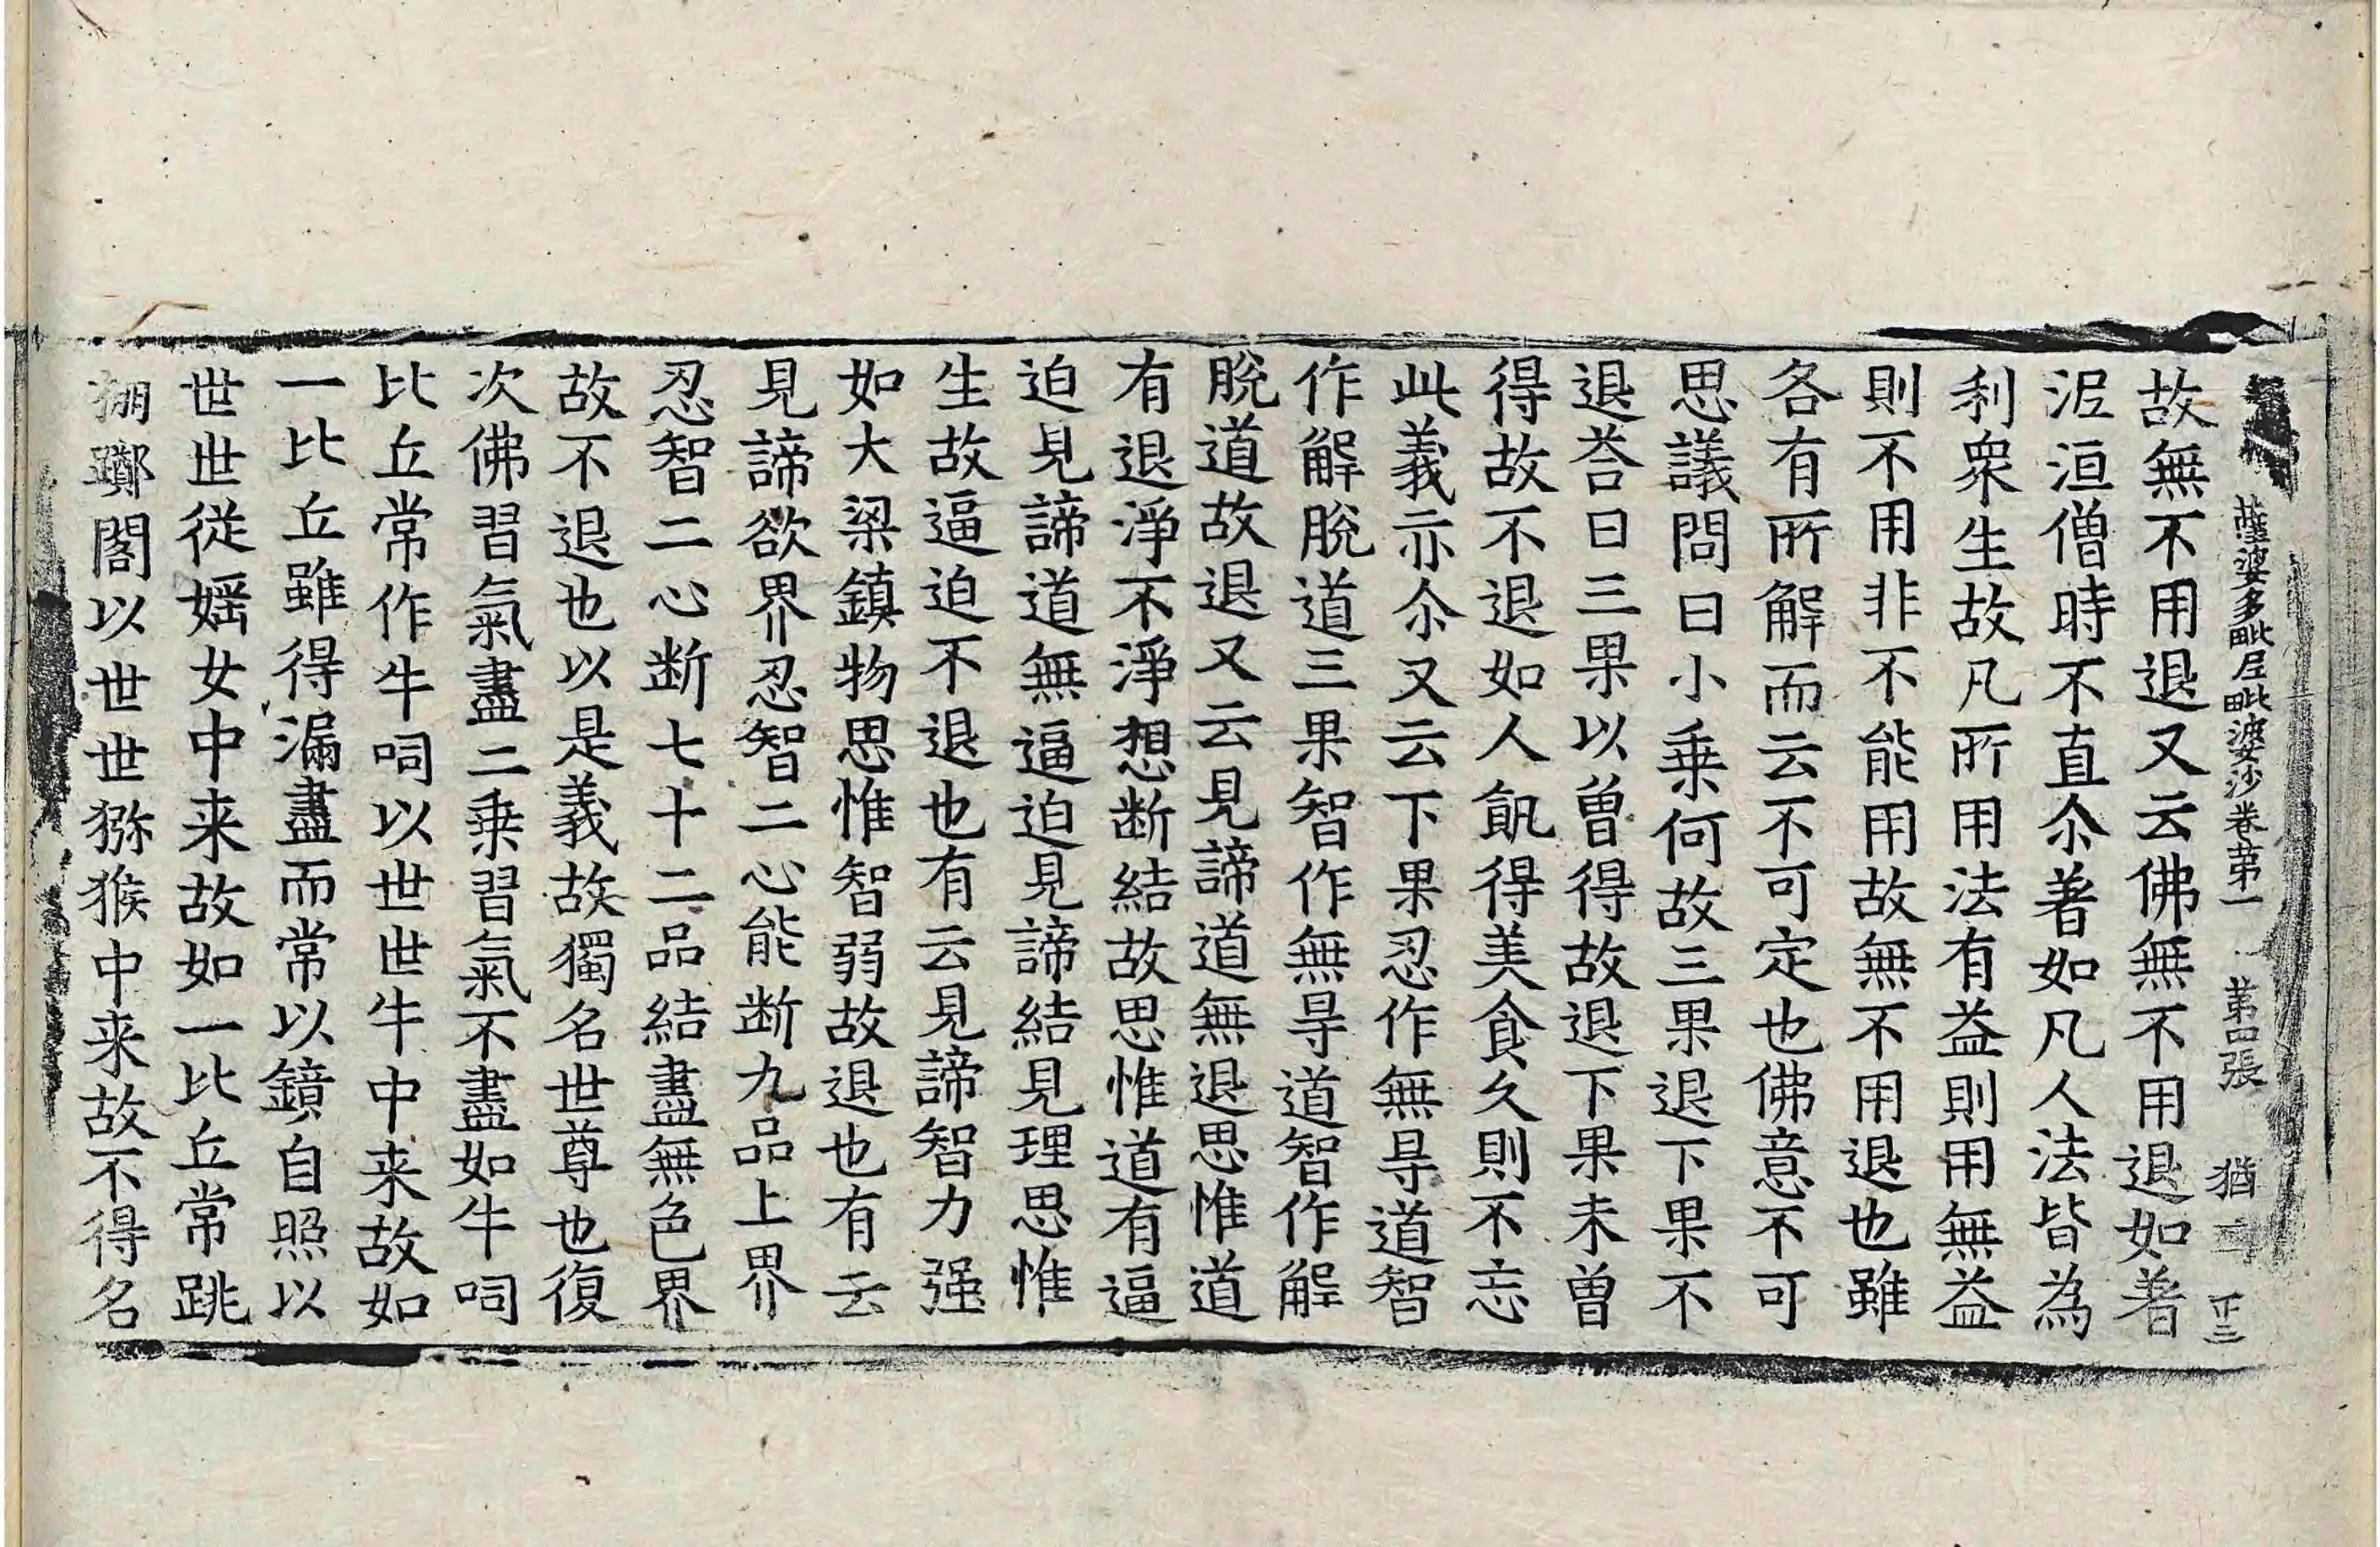 薩婆多毗尼毗婆沙卷苐一 苐四張 猶 正三
故無不用退又云佛無不用退如著
泥洹僧時不直尒著如凡人法皆為
利衆生故凡所用法有益則用無益
則不用非不能用故無不用退也雖
各有所解而云不可定也佛意不可
思議問曰小乗何故三果退下果不
退荅曰三果以曽得故退下果未曽
得故不退如人飢得美食久則不忘
此義亦尒又云下果忍作無㝵道智
作解脫道三果智作無㝵道智作解
脫道故退又云見諦道無退思惟道
有退淨不淨想断結故思惟道有逼
迫見諦道無逼迫見諦結見理思惟
生故逼迫不退也有云見諦智力强
如大梁鎮物思惟智弱故退也有云
見諦欲界忍智二心能断九品上界
忍智二心断七十二品結盡無色界
故不退也以是義故獨名世尊也復
次佛習氣盡二乗習氣不盡如牛呞
比丘常作牛呞以世世牛中来故如
一比丘雖得漏盡而常以鏡自照以
世世從婬女中来故如一比丘常跳
擲閣以世世猕猴中来故不得名